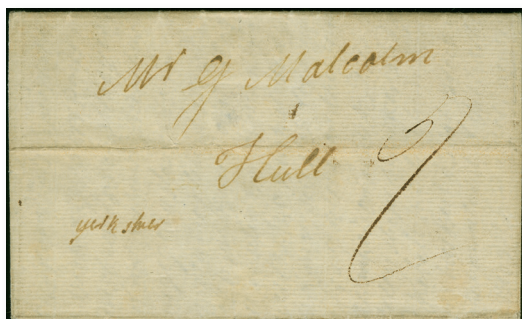 Mr G Malcolm
Hull
7
yerk shier